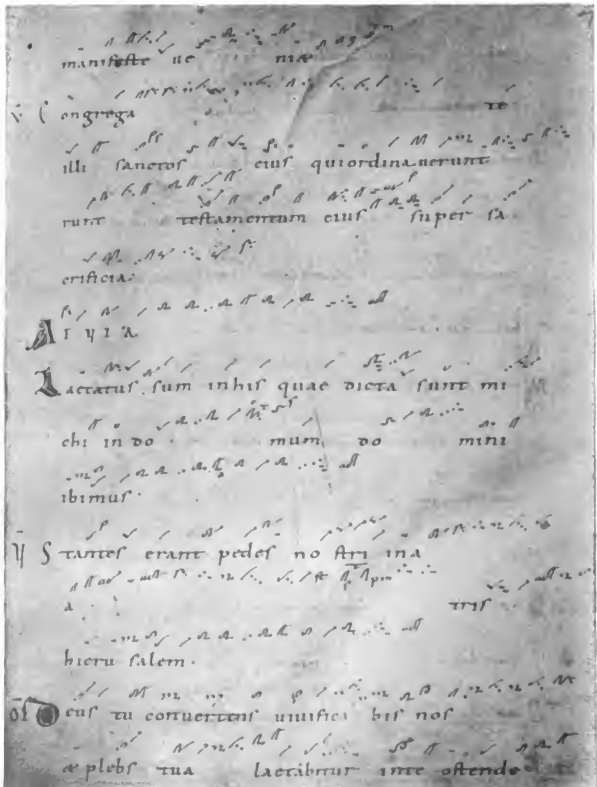 manifeste ue niæ
v̄ Congrega te
illi sanctos eius qui ordinauerunt
runt testamentum eius super sa
crificia.
Al l ų ia
Laetatus sum in his quae dicta sunt mi
chi in do mum do mini
ibimus.
Stantes erant pedes no stri in a
a tris
hieru salem.
Deus tu conuertens uiuifica bis nos
æ plebs tua laetabitur in te ostende